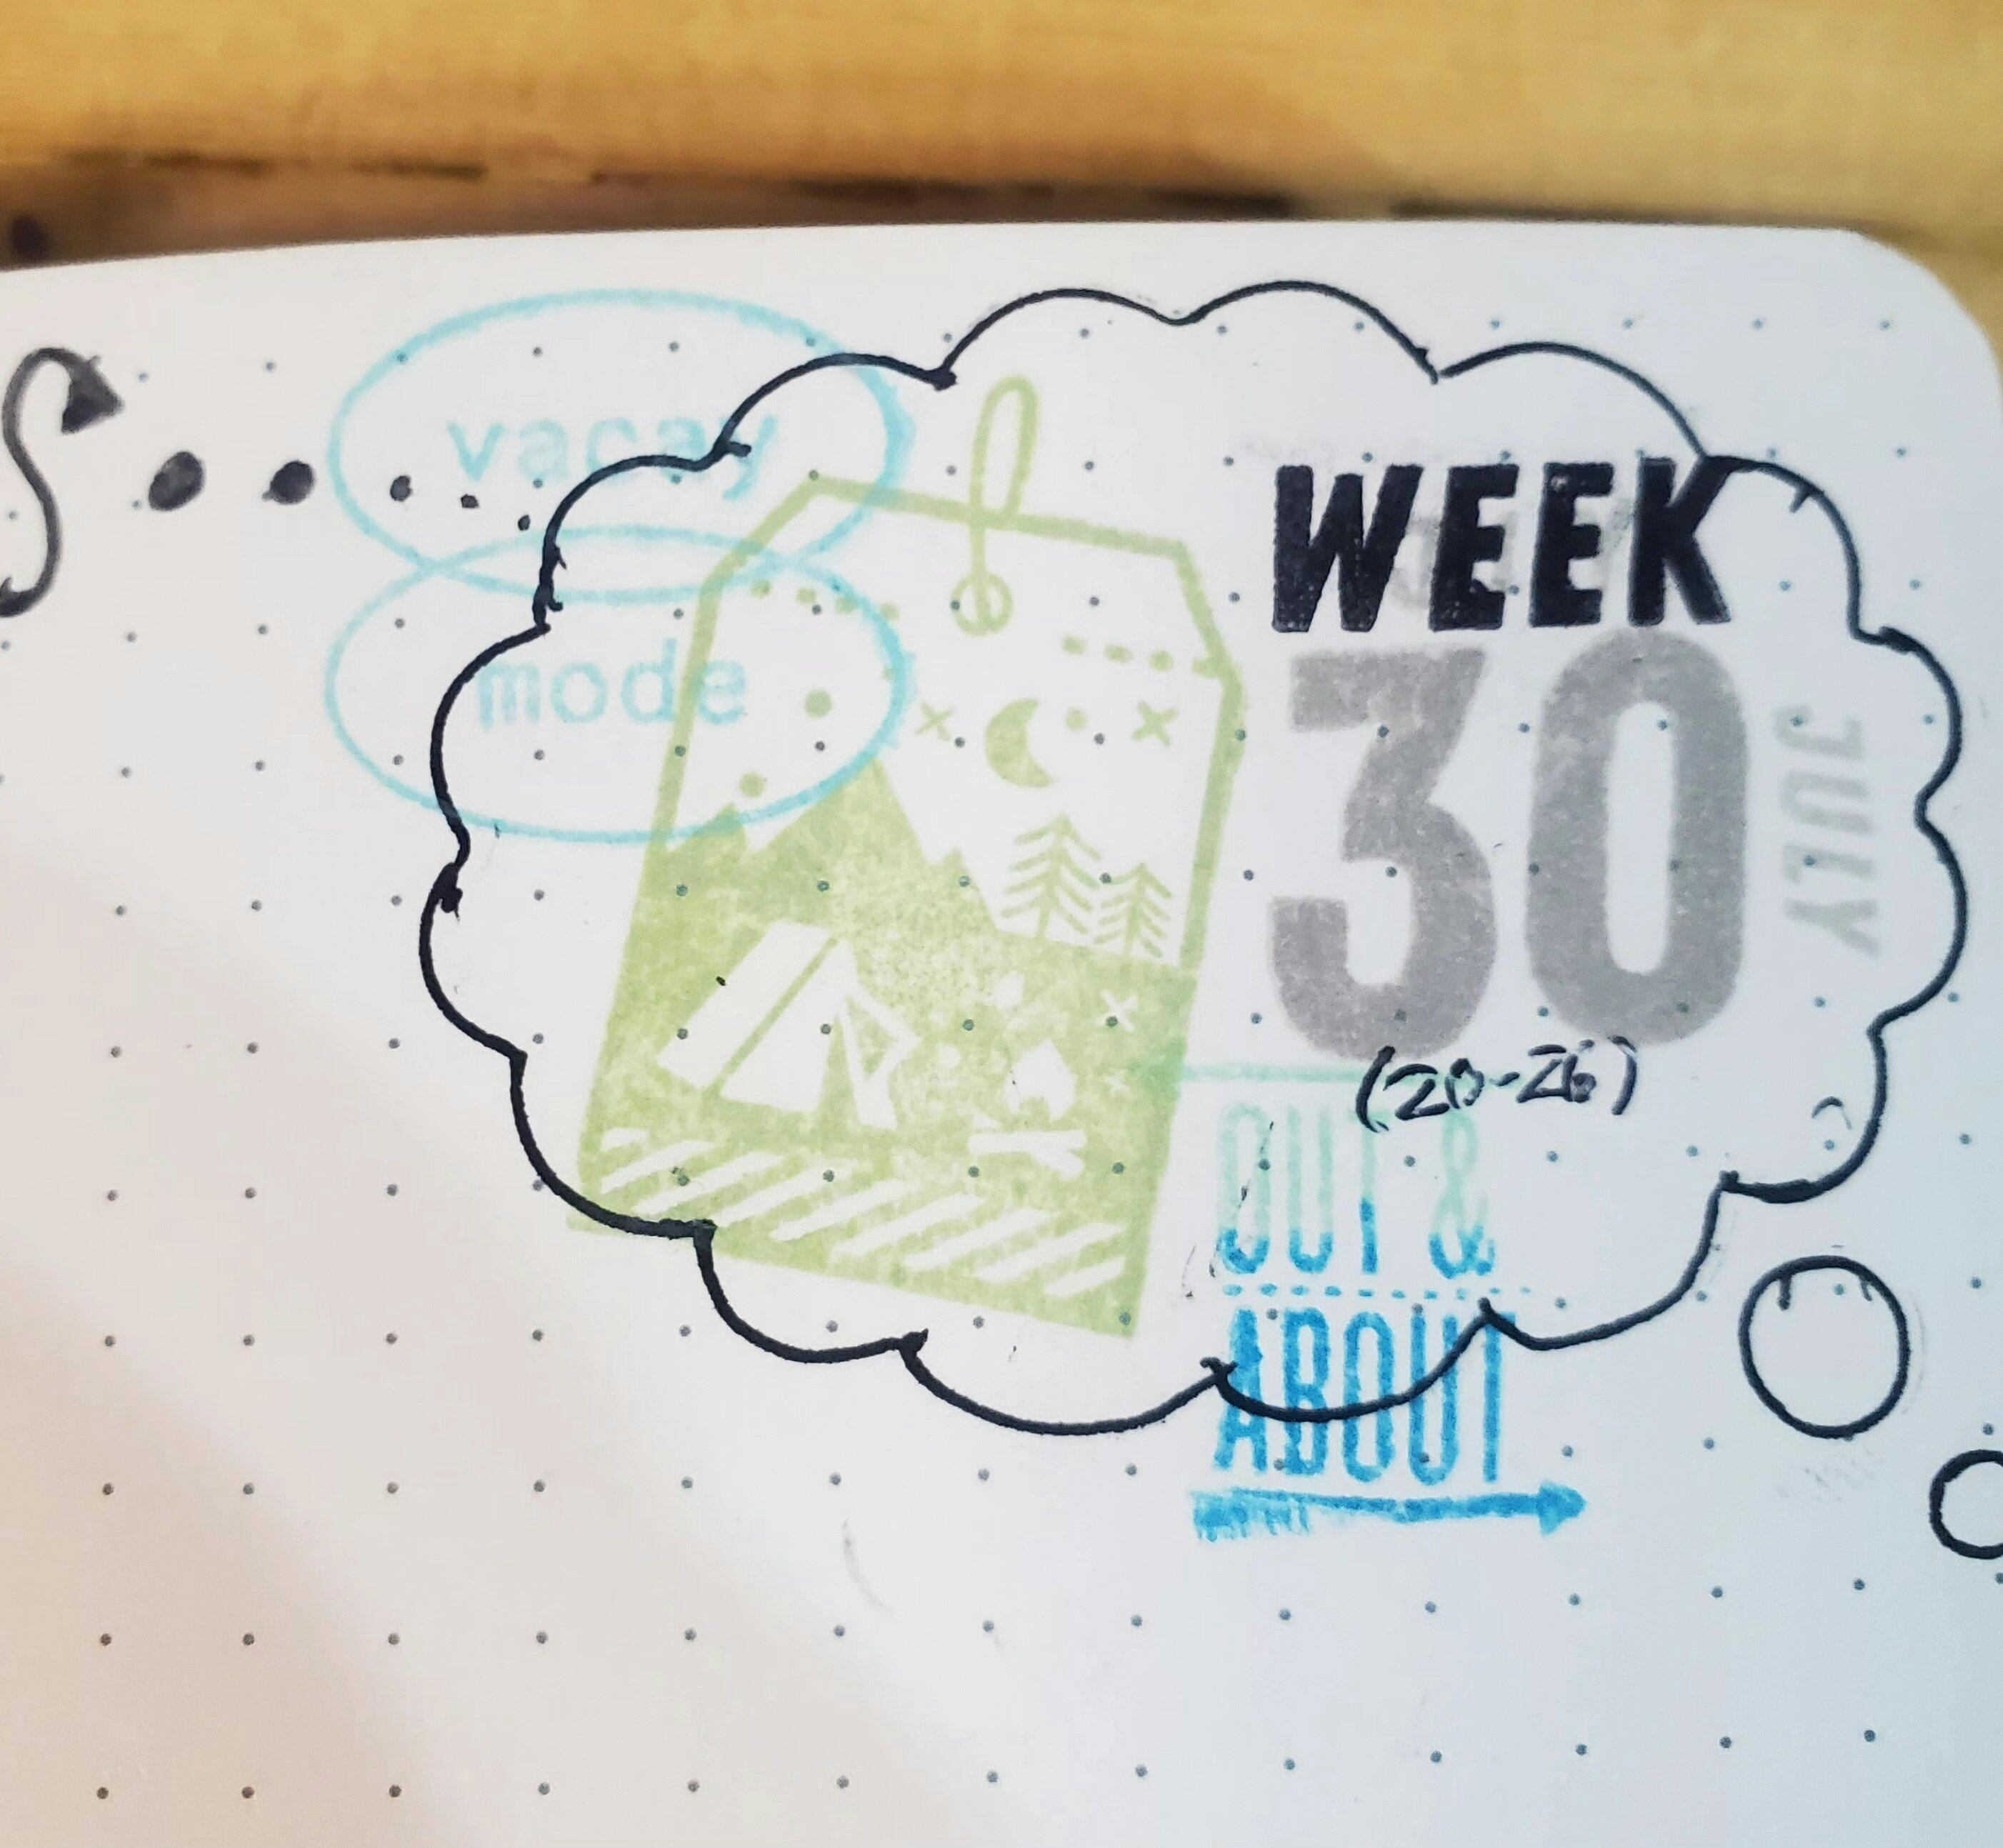 S
vacay
mode
WEEK
30
JULY
(20-26)
OUT &
ABOUT